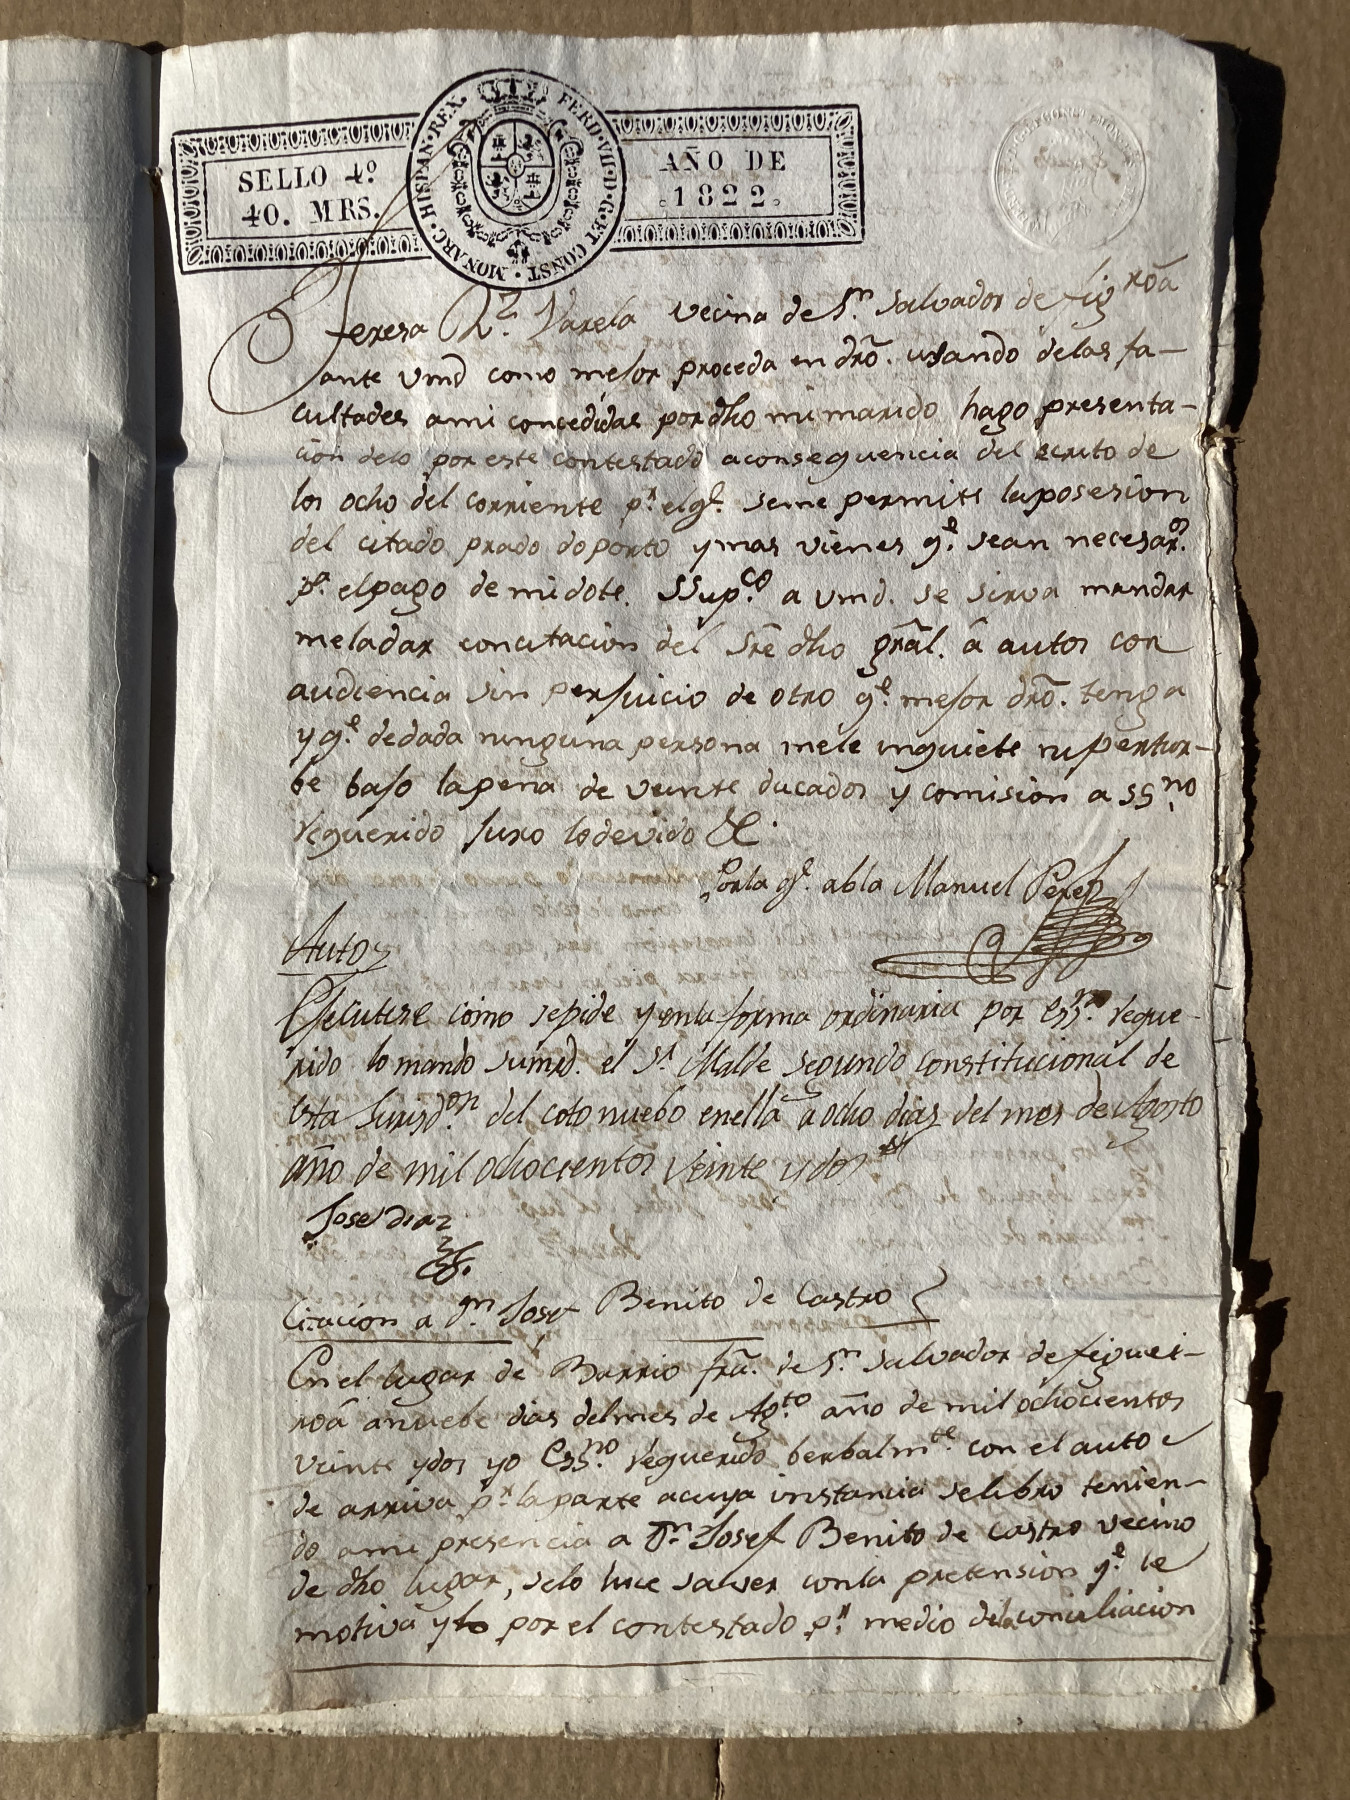 SELLO 4º
40. MRS.
HISPAN. REX. FERD. VII. D. G. ET CONST. MONARC.
AÑO DE
1822
Teresa R.z Varela vecina de S.n Salvador de fig.roâ
ante Vmd como mejor proceda en dro. usando delas fa-
cultades ami concedidas por dho mi marido hago presenta-
cion delo por este contestado aconsequencia del escrito de
los ocho del corriente p.r elq.e seme permite laposesion
del citado prado doporto ymas vienes q.e sean necesar.os
p.a elpago de midote. SSup.co a vmd. se sirva mandar
meladar concitacion del Sre dho gral. â autos con
audiencia sin perjuicio de otro q.e mejor dro. tenga
yq.e dedada ninguna persona mele inquiete nipertur-
be bajo lapena de veinte ducados y comision a SS.no
requerido Juro lodevido &.
Porla q.e abla Manuel Perez
Auto
Ejecutese como sepide yenla forma ordinaria por ess.no reque-
rido lo mando sumrd. el S.r Alalde segundo constitucional de
esta Jurisd.on del coto nuebo enella a ocho dias del mes de Agosto
año de mil ochocientos veinte ydos
Jose diaz
Citacion a D.n Josef Benito de Castro
En el lugar de Barrio fra. de S.n Salvador de figuei-
roâ anuebe dias delmes de Ag.to año de mil ochocientos
veinte ydos yo Ess.no requerido berbalm.te con el auto
de arriva p.r laparte acuya instancia selibro tenien-
do ami presencia a D.n Josef Benito de Castro vecino
de dho lugar, selo hice saver conla pretension q.e le
motiva ylo por el contestado p.r medio dela conciliacion